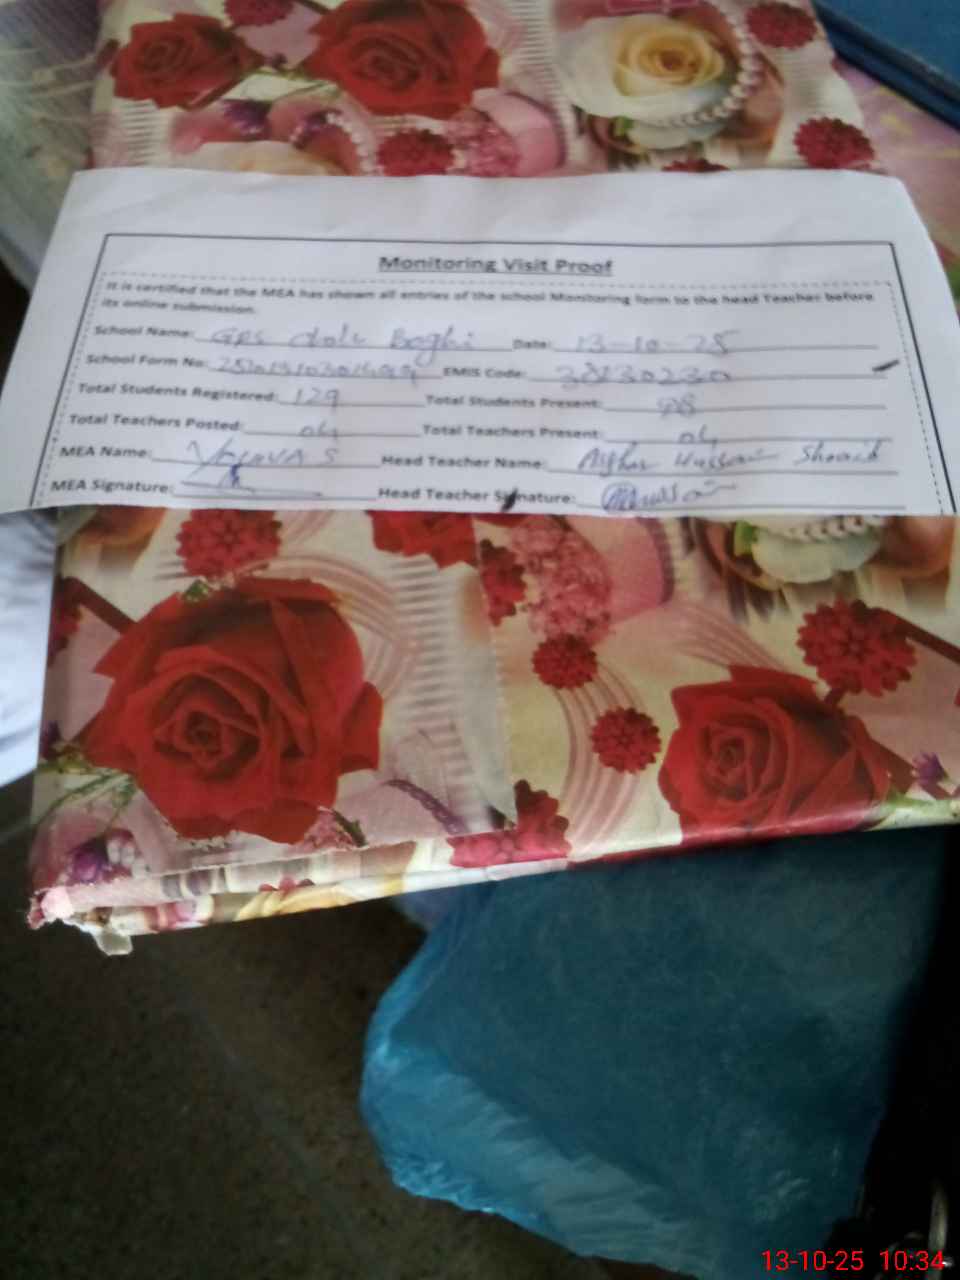 Monitoring Visit Proof
It is certified that the MEA has shown all entries of the school Monitoring form to the head Teacher before
its online submission.
School Name: GPS Boghi Date: 13-10-25
School Form No: EMIS Code:
Total Students Registered: 129 Total Students Present: 98
Total Teachers Posted: 04 Total Teachers Present: 04
MEA Name: Head Teacher Name: Hussain
MEA Signature: Head Teacher Signature:
13-10-25 10:34